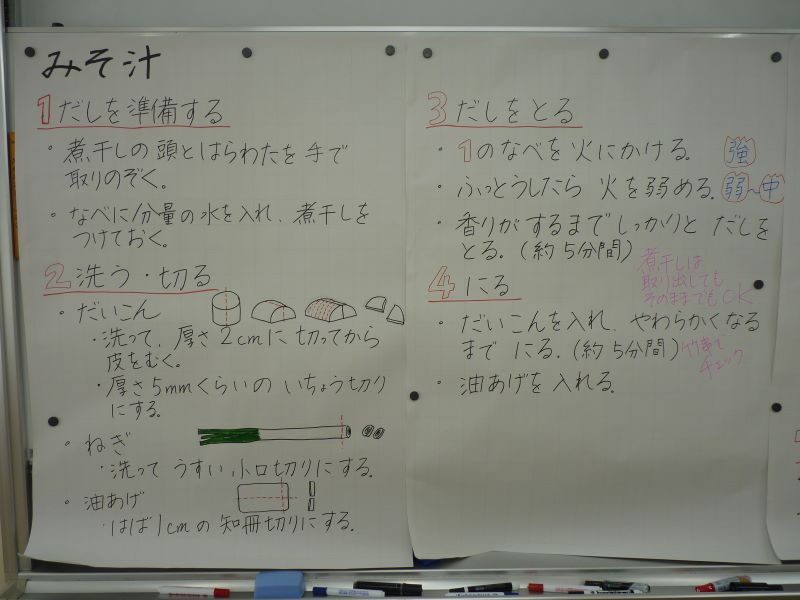 みそ汁
1 だしを準備する
・煮干しの頭とはらわたを手で
取りのぞく。
・なべに1分量の水を入れ、煮干しを
つけておく。
2 洗う・切る
・だいこん
・洗って、厚さ2cmに切ってから
皮をむく。
・厚さ5mmくらいのいちょう切り
にする。
・ねぎ
・洗ってうすい小口切りにする。
・油あげ
・はば1cmの短冊切りにする。
3 だしをとる
・1のなべを火にかける。 強
・ふっとうしたら火を弱める。 弱~中
・香りがするまでしっかりとだしを
とる。(約5分間)
煮干しは
取り出しても
そのままでもOK
4 にる
・だいこんを入れ、やわらかくなる
まで にる。(約5分間)
竹串で
チェック
・油あげを入れる。